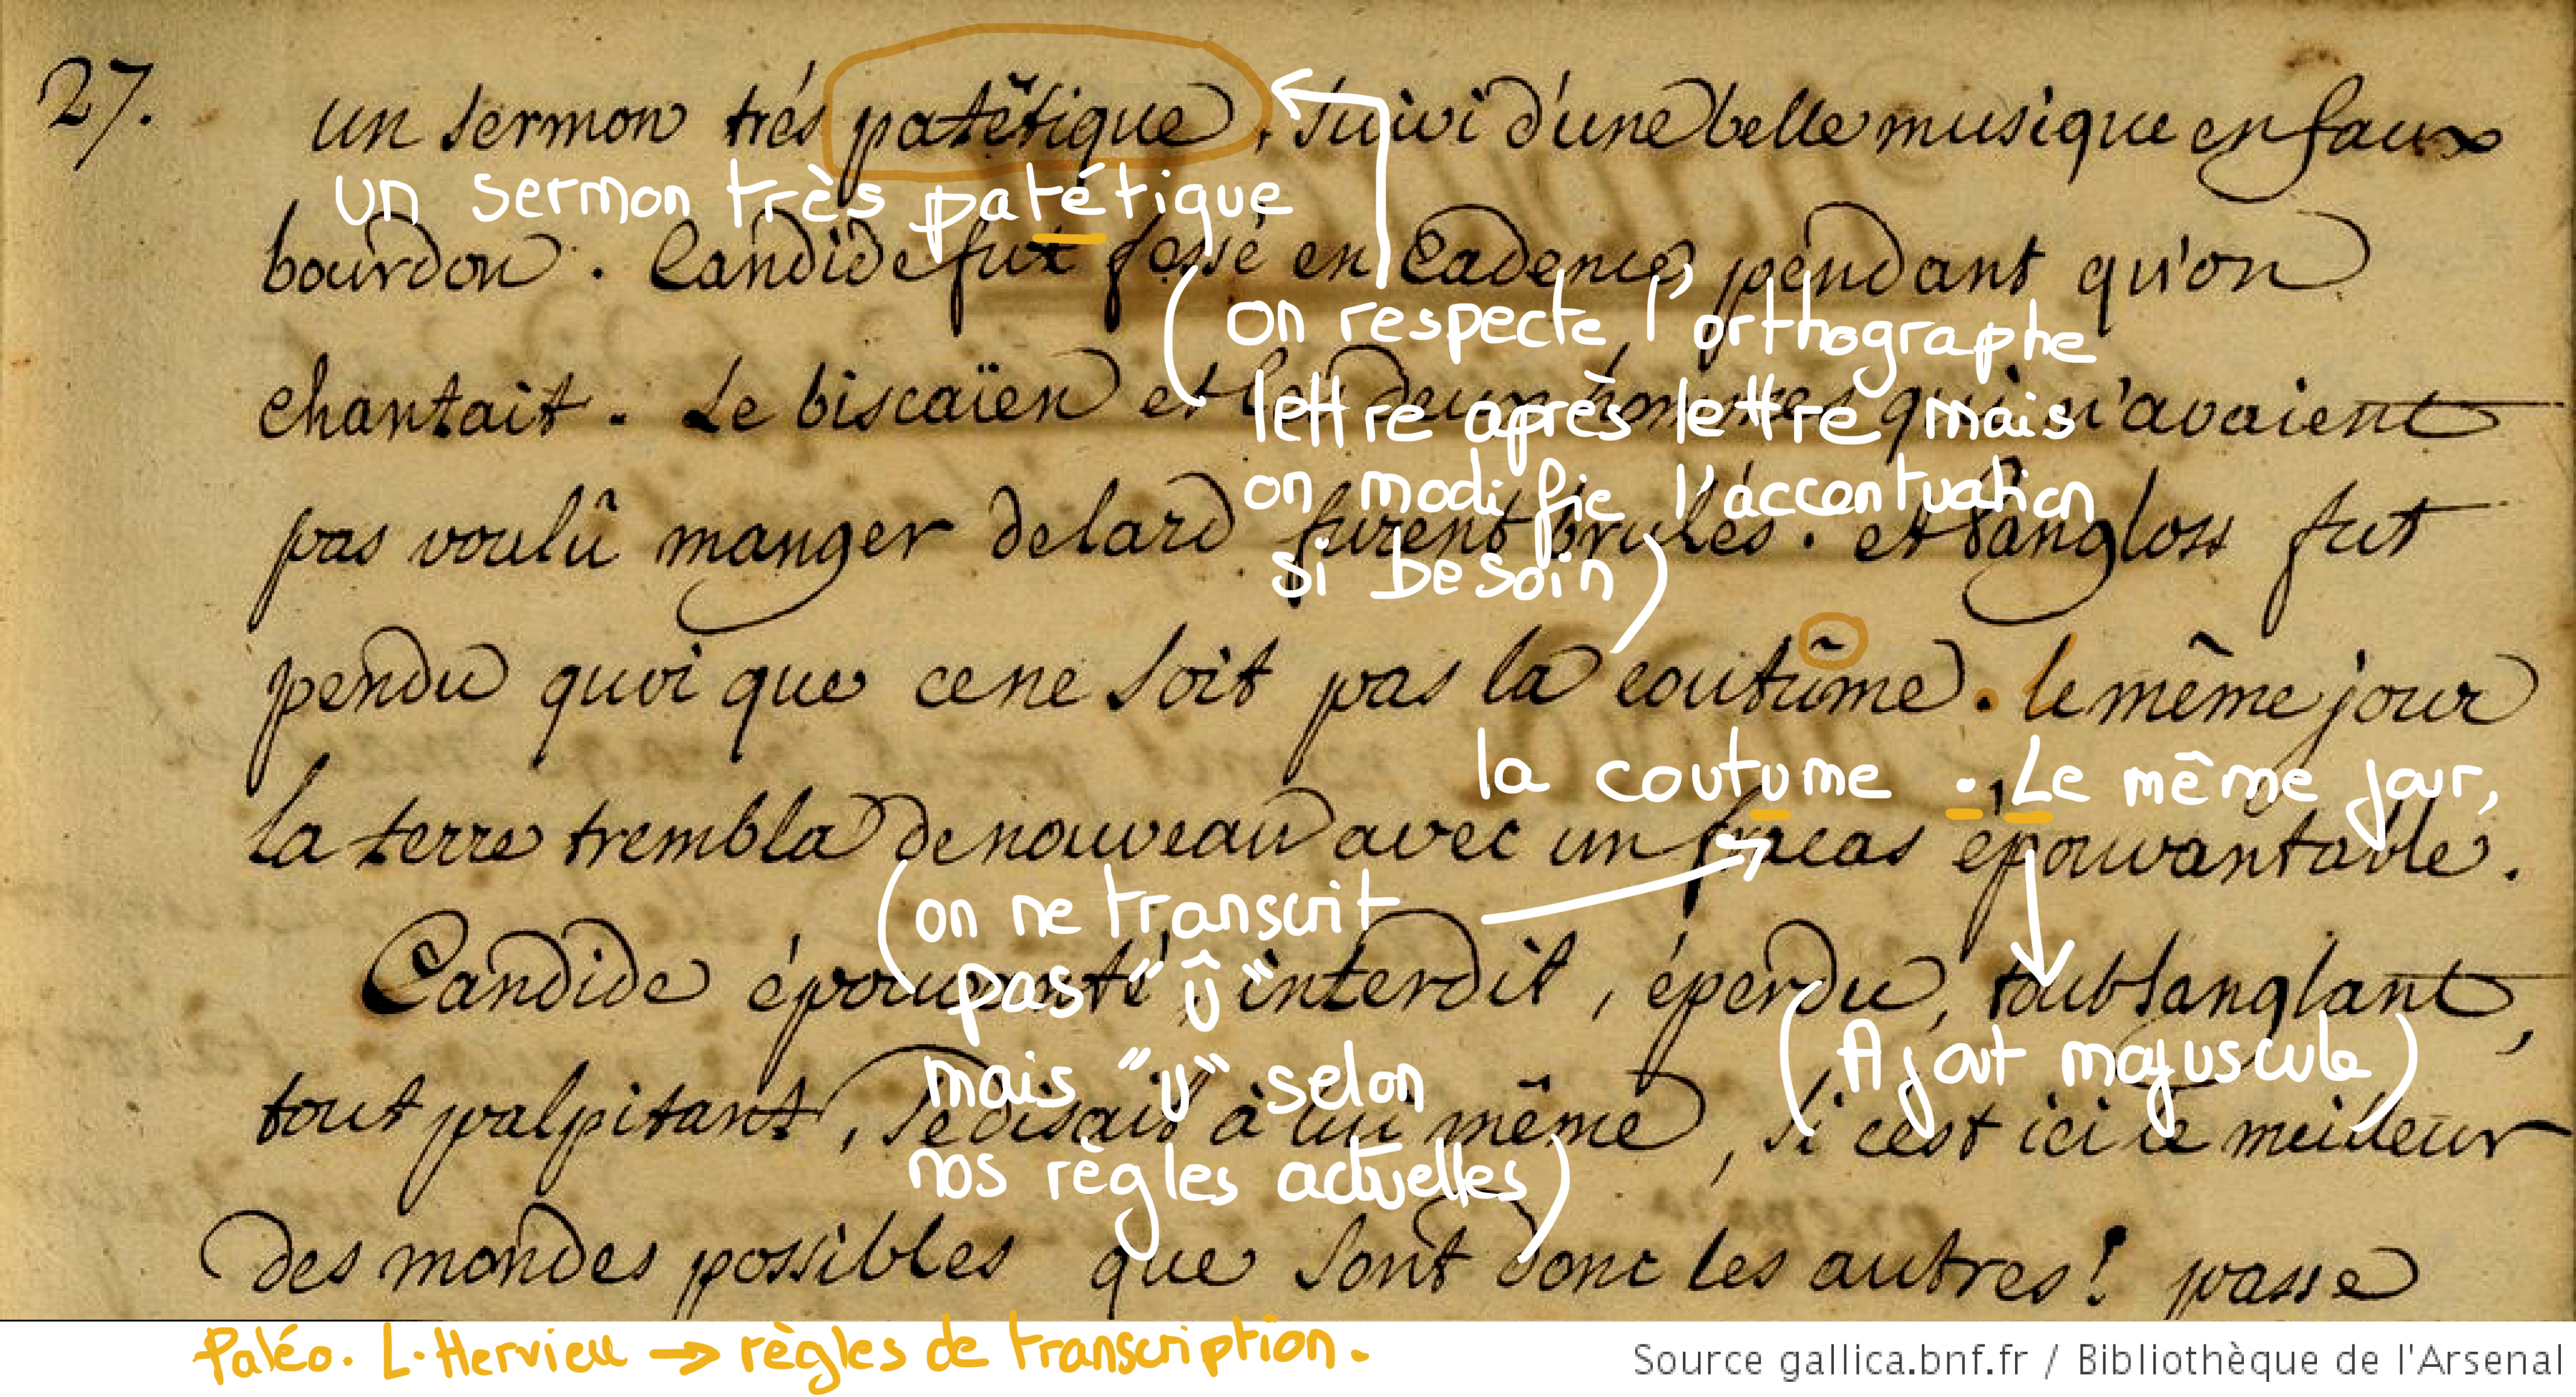 27.
un sermon trés patêtique, suivi d'une belle musique en faux
un sermon très patétique
bourdon. Candide fut fessé en Cadence, pendant qu'on
(on respecte l'orthographe
chantait. Le biscaïen et les deux hommes qui n'avaient
lettre après lettre mais
on modifie l'accentuation
pas voulû manger de lard furent brulés. et Pangloss fut
si besoin)
pendu quoi que ce ne soit pas la coutûme. le même jour
la coutume. Le même jour,
la terre trembla de nouveau avec un fracas épouvantable.
(on ne transcrit
Candide épouvanté, interdit, éperdu, tout sanglant,
pas "û"
(Ajout majuscule)
mais "u" selon
tout palpitant, se disait à lui même, si c'est ici le meilleur
nos règles actuelles)
des mondes possibles que sont donc les autres! passe
Paléo. L. Hervieu → règles de transcription.
Source gallica.bnf.fr / Bibliothèque de l'Arsenal